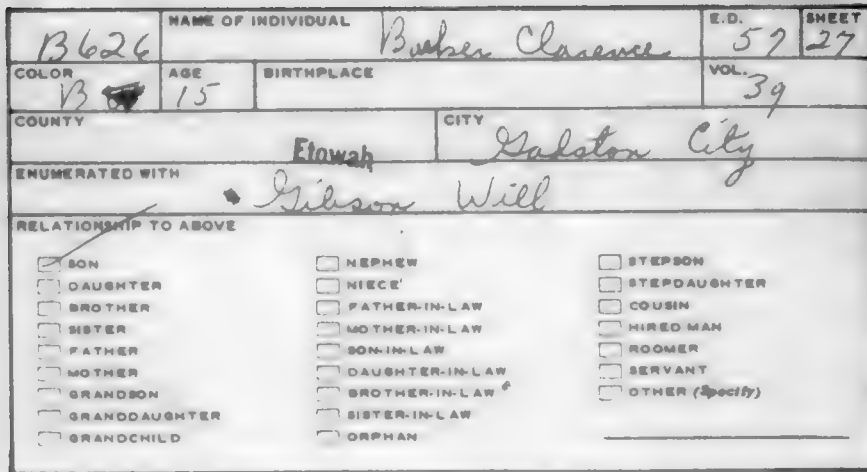 B626
NAME OF INDIVIDUAL
Barker Clarence
E.D.
57
SHEET
27
COLOR
B
AGE
15
BIRTHPLACE
VOL.
39
COUNTY
Etowah
CITY
Gadston City
ENUMERATED WITH
Gibson Will
RELATIONSHIP TO ABOVE
SON
DAUGHTER
BROTHER
SISTER
FATHER
MOTHER
GRANDSON
GRANDDAUGHTER
GRANDCHILD
NEPHEW
NIECE
FATHER-IN-LAW
MOTHER-IN-LAW
SON-IN-LAW
DAUGHTER-IN-LAW
BROTHER-IN-LAW
SISTER-IN-LAW
ORPHAN
STEPSON
STEPDAUGHTER
COUSIN
HIRED MAN
ROOMER
SERVANT
OTHER (Specify)